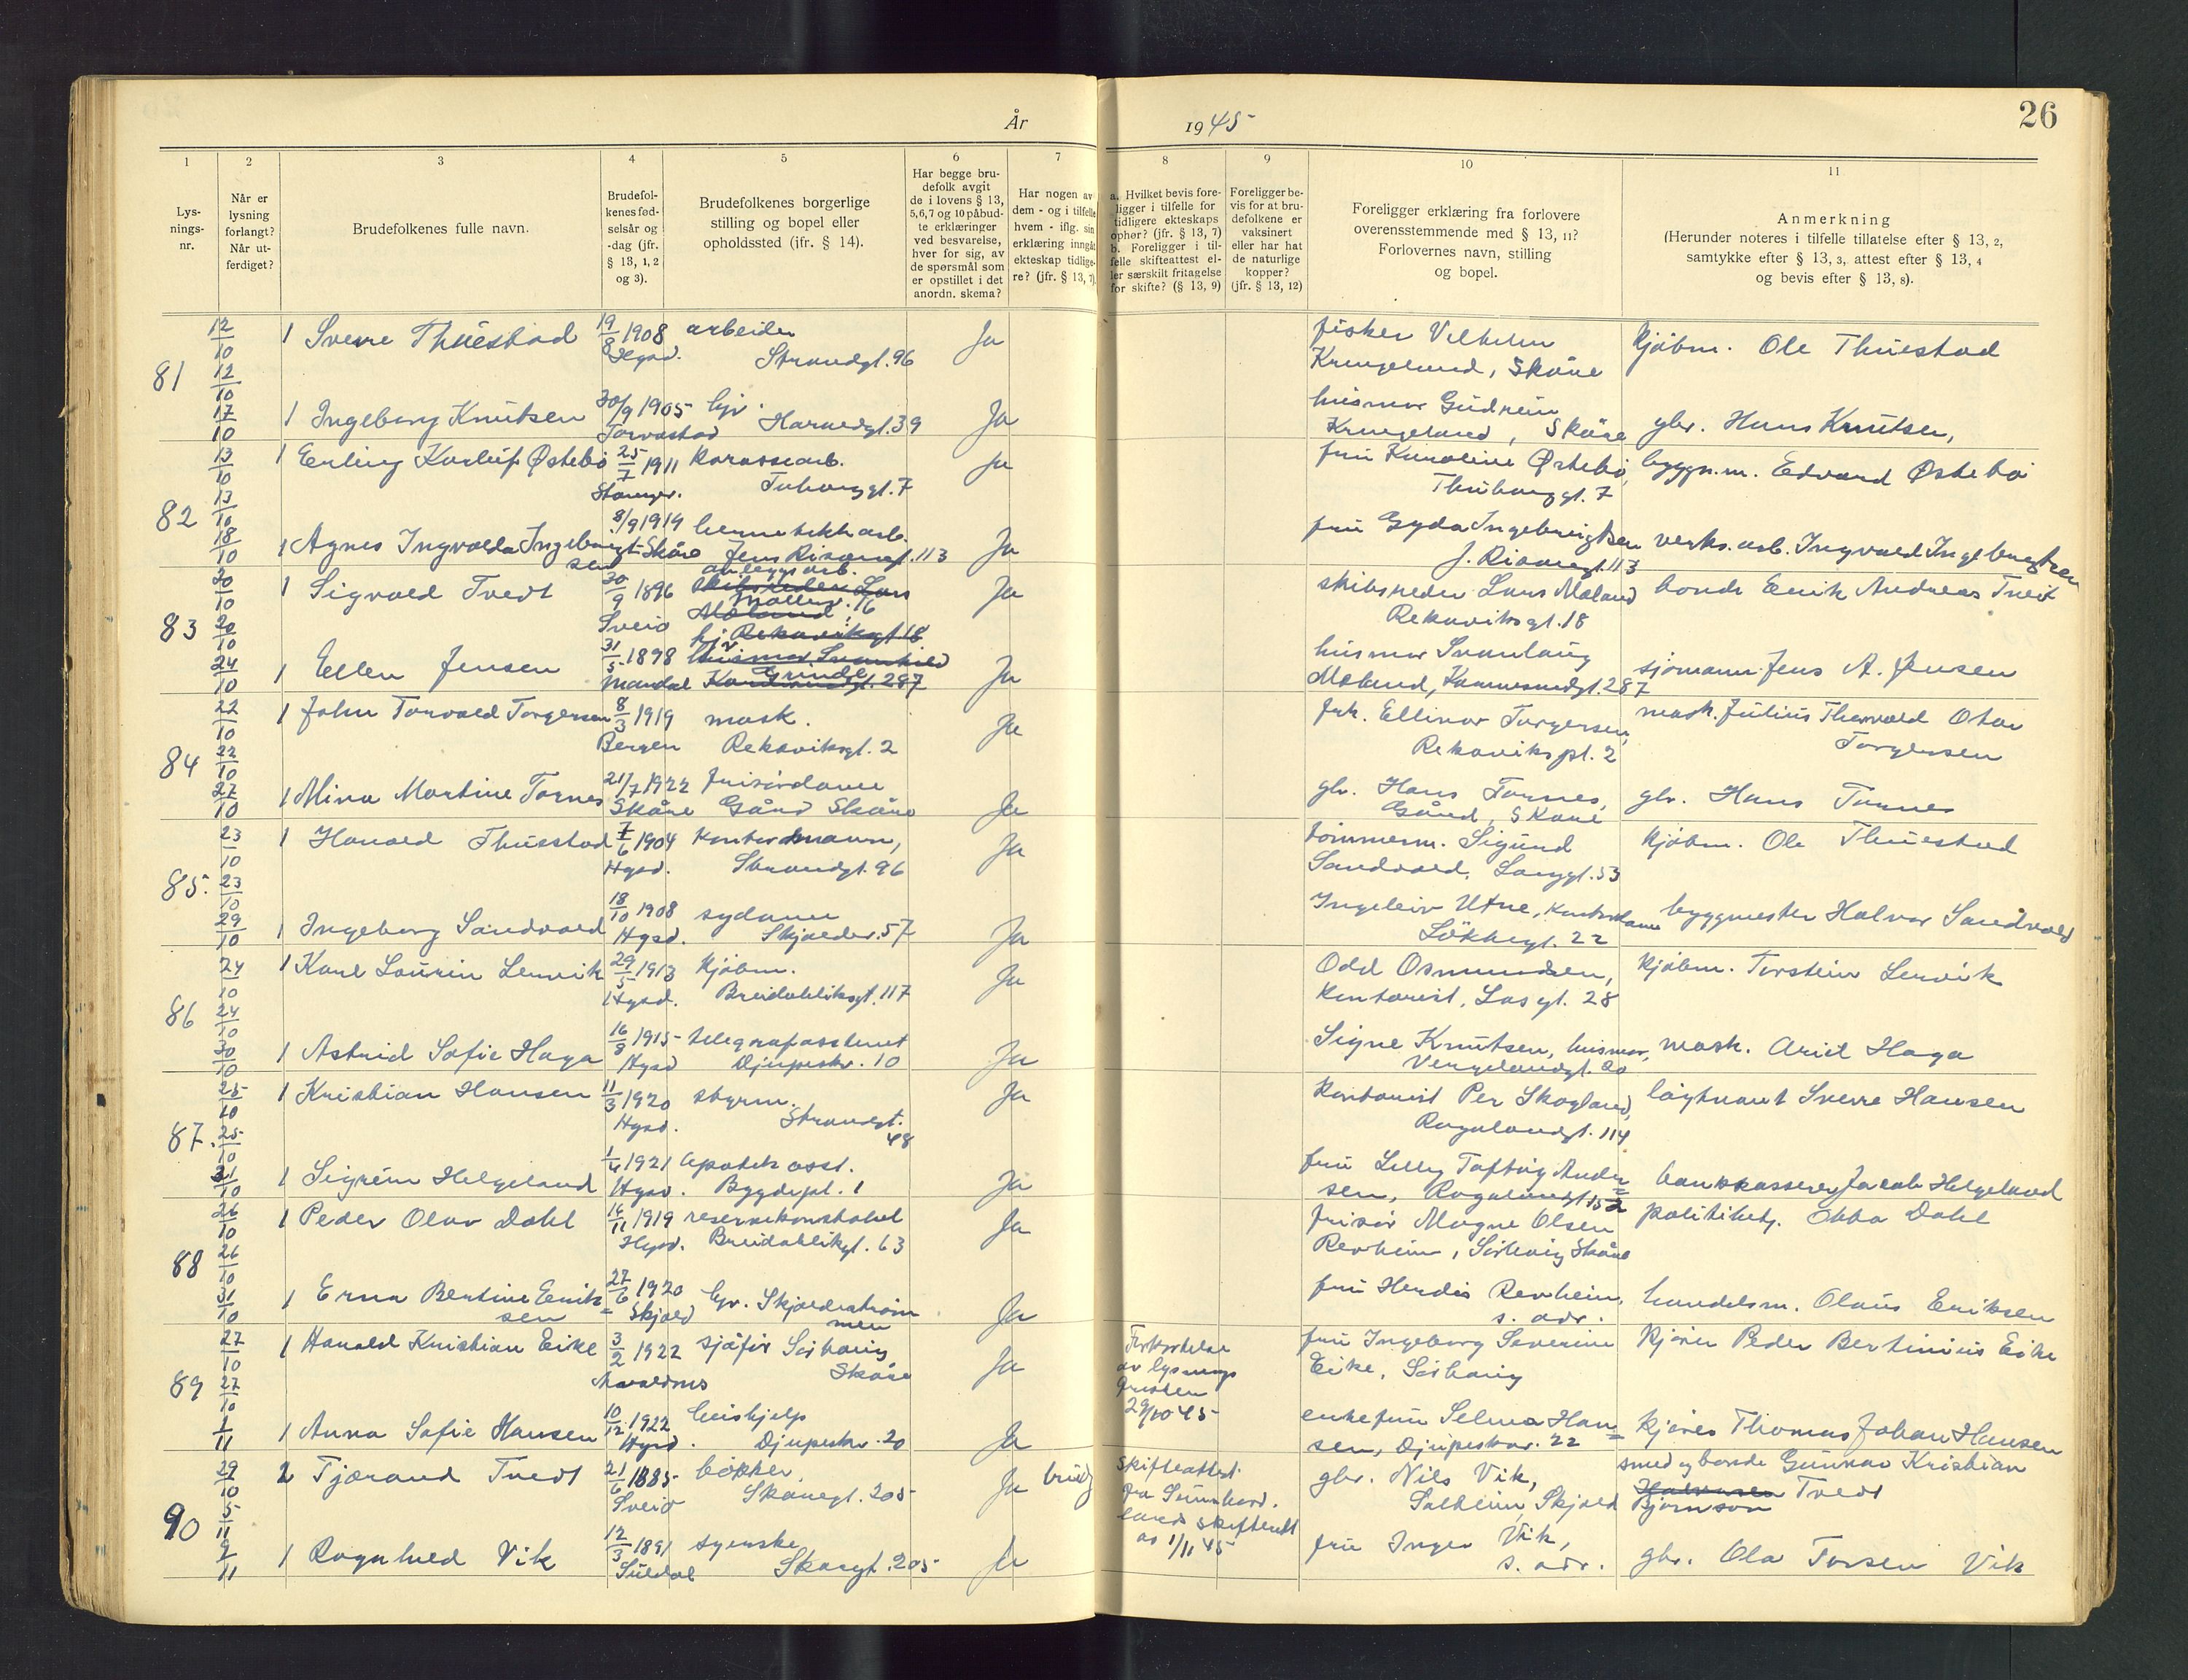 26
År 1945
1
2
3
4
5
6
7
8
9
10
11
Lys-
nings-
nr.
Når er
lysning
forlangt?
Når ut-
ferdiget?
Brudefolkenes fulle navn.
Brudefol-
kenes fød-
selsår og
-dag (jfr.
§ 13, 1, 2
og 3).
Brudefolkenes borgerlige
stilling og bopel eller
opholdssted (jfr. § 14).
Har begge bru-
defolk avgit
de i lovens § 13,
5, 6, 7 og 10 påbud-
te erklæringer
ved besvarelse,
hver for sig, av
de spørsmål som
er opstillet i det
anordn. skema?
Har nogen av
dem - og i tilfelle
hvem - iflg. sin
erklæring inngåt
ekteskap tidlige-
re? (jfr. § 13, 7)
a. Hvilket bevis fore-
ligger i tilfelle for
tidligere ekteskaps
ophør? (jfr. § 13, 7)
b. Foreligger i til-
felle skifteattest el-
ler særskilt fritagelse
for skifte? (§ 13, 9)
Foreligger be-
vis for at bru-
defolkene er
vaksinert
eller har hat
de naturlige
kopper?
(jfr. § 13, 12)
Foreligger erklæring fra forlovere
overensstemmende med § 13, 11?
Forlovernes navn, stilling
og bopel.
Anmerkning
(Herunder noteres i tilfelle tillatelse efter § 13, 2,
samtykke efter § 13, 3, attest efter § 13, 4
og bevis efter § 13, 8).
81
12/10
12/10
17/10
1 Sverre Thuestad
19/8 1908
Hgsd.
arbeider
Strandgt. 96
Ja
fisker Vilhelm
Krungeland, Skåre
kjøbm. Ole Thuestad
1 Ingeborg Knutsen
30/9 1905
Torvastad
hjv.
Haraldgt. 39
Ja
husmor Gudrun
Krungeland, Skåre
gbr. Hans Knutsen,
82
13/10
13/10
18/10
1 Erling Karluf Østebø
25/7 1911
Stavngr.
karosseriarb.
Tuhauggt. 7
Ja
fru Karoline Østebø,
Thuhauggt. 7
byggn.m. Edvard Østebø
1 Agnes Ingvalda Ingebrigt-
sen
8/9 1914
Skåre
hermetikkarb.
Jens Risøensgt. 113
Ja
fru Gyda Ingebrigtsen
J. Risøensgt. 113
verks.arb. Ingvald Ingebrigtsen
83
20/10
20/10
24/10
1 Sigvald Tvedt
30/9 1896
Sveio
anleggsarb.
skibsreder Lars
Møllerv. 16
Møland
Rekaviksgt 18
Ja
skibsreder Lars Møland
Rekaviksgt. 18
bonde Erik Andreas Tveit
1 Ellen Jensen
31/5 1898
Mandal
hjv
Grinde
Karmsundgt. 287
Ja
husmor Svanlaug
Møland, Karmsundgt. 287
sjømann Jens A. Jensen
84
22/10
22/10
27/10
1 John Torvald Torgersen
8/3 1919
Bergen
mask.
Rekaviksgt. 2
Ja
frk. Ellinor Torgersen,
Rekavikspl. 2
mask. Julius Thorvald Olav
Torgersen
1 Mina Martine Tornes
21/7 1922
Skåre
frisørdame
Gård Skåre
Ja
gbr. Hans Tornes,
Gård, Skåre
gbr. Hans Tornes
85.
23/10
23/10
29/10
1 Harald Thuestad
7/6 1904
Hgsd.
kontormann,
Strandgt. 96
Ja
tømmerm. Sigurd
Sandvold, Langgt. 53
kjøbm. Ole Thuestad
1 Ingeborg Sandvold
18/10 1908
Hgsd.
sydame
Skjoldev. 57
Ja
Ingeleiv Utne, kontordame
Løkkegt. 22
byggmester Halvor Sandvold
86
24/10
24/10
30/10
1 Karl Laurin Lervik
29/5 1913
Hgsd.
kjøbm.
Breidabliksgt. 117
Ja
Odd Osmundsen,
kontorist, Lasgt. 28
kjøbm. Torstein Lervik
1 Astrid Sofie Haga
16/8 1915
Hgsd
telegrafassistent
Djupaskr. 10
Ja
Signe Knutsen, husmor,
Vergelandgt. 20
mask. Ariel Haga
87.
25/10
25/10
31/10
1 Kristian Hansen
11/3 1920
Hgsd.
styrm.
Strandgt.
48
Ja
kontorist Per Skogland,
Rogalandgt. 114
løytnant Sverre Hansen
1 Sigrun Helgeland
1/4 1921
Hgsd.
apotek asst.
Bygdepl. 1
Ja
fru Lilly Toftøy Ander=
sen, Rogalandgt 152
bankkasserer Jacob Helgeland
88
26/10
26/10
31/10
1 Peder Olav Dahl
14/11 1919
Hgsd.
reservekonstabel
Breidablikgt. 63
Ja
frisør Magne Olsen
Revheim, Sørhaug Skåre
politibetj. Ebba Dahl
1 Erna Bertine Erik=
sen
27/6 1920
Skjold
hjv. Skjoldastraum
men
Ja
fru Herdis Revheim,
s. adr.
handelsm. Olaus Eriksen
89
27/10
27/10
1/11
1 Harald Kristian Eike
3/2 1922
Avaldsnes
sjåfør Sørhaug
Skåre
Ja
Forkortelse
av lysnings
fristen
29/10 45
fru Ingeborg Severine
Eike, Sørhaug
kjører Peder Bertinius Eike
1 Anna Sofie Hansen
10/12 1922
Hgsd.
hushjelp
Djupaskar. 20
Ja
enkefru Selma Han=
sen, Djupaskar. 22
kjøres Thomas Johan Hansen
90
29/10
5/11
9/11
2 Tjærand Tvedt
21/6 1885
Sveio
bøkker,
Skåregt. 205
Ja
skifteattest
fra Sunnhord.
lands skifterett
av 1/11 45
gbr. Nils Vik,
Solheim, Skjold
smed og bonde Gunnar Kristian
Halvorsen Tvedt
Bjørnson
1 Ragnhild Vik
12/3 1891
Suldal
syerske
Skaregt. 205
Ja
fru Inger Vik,
s. adr.
gbr. Ola Torsen Vik